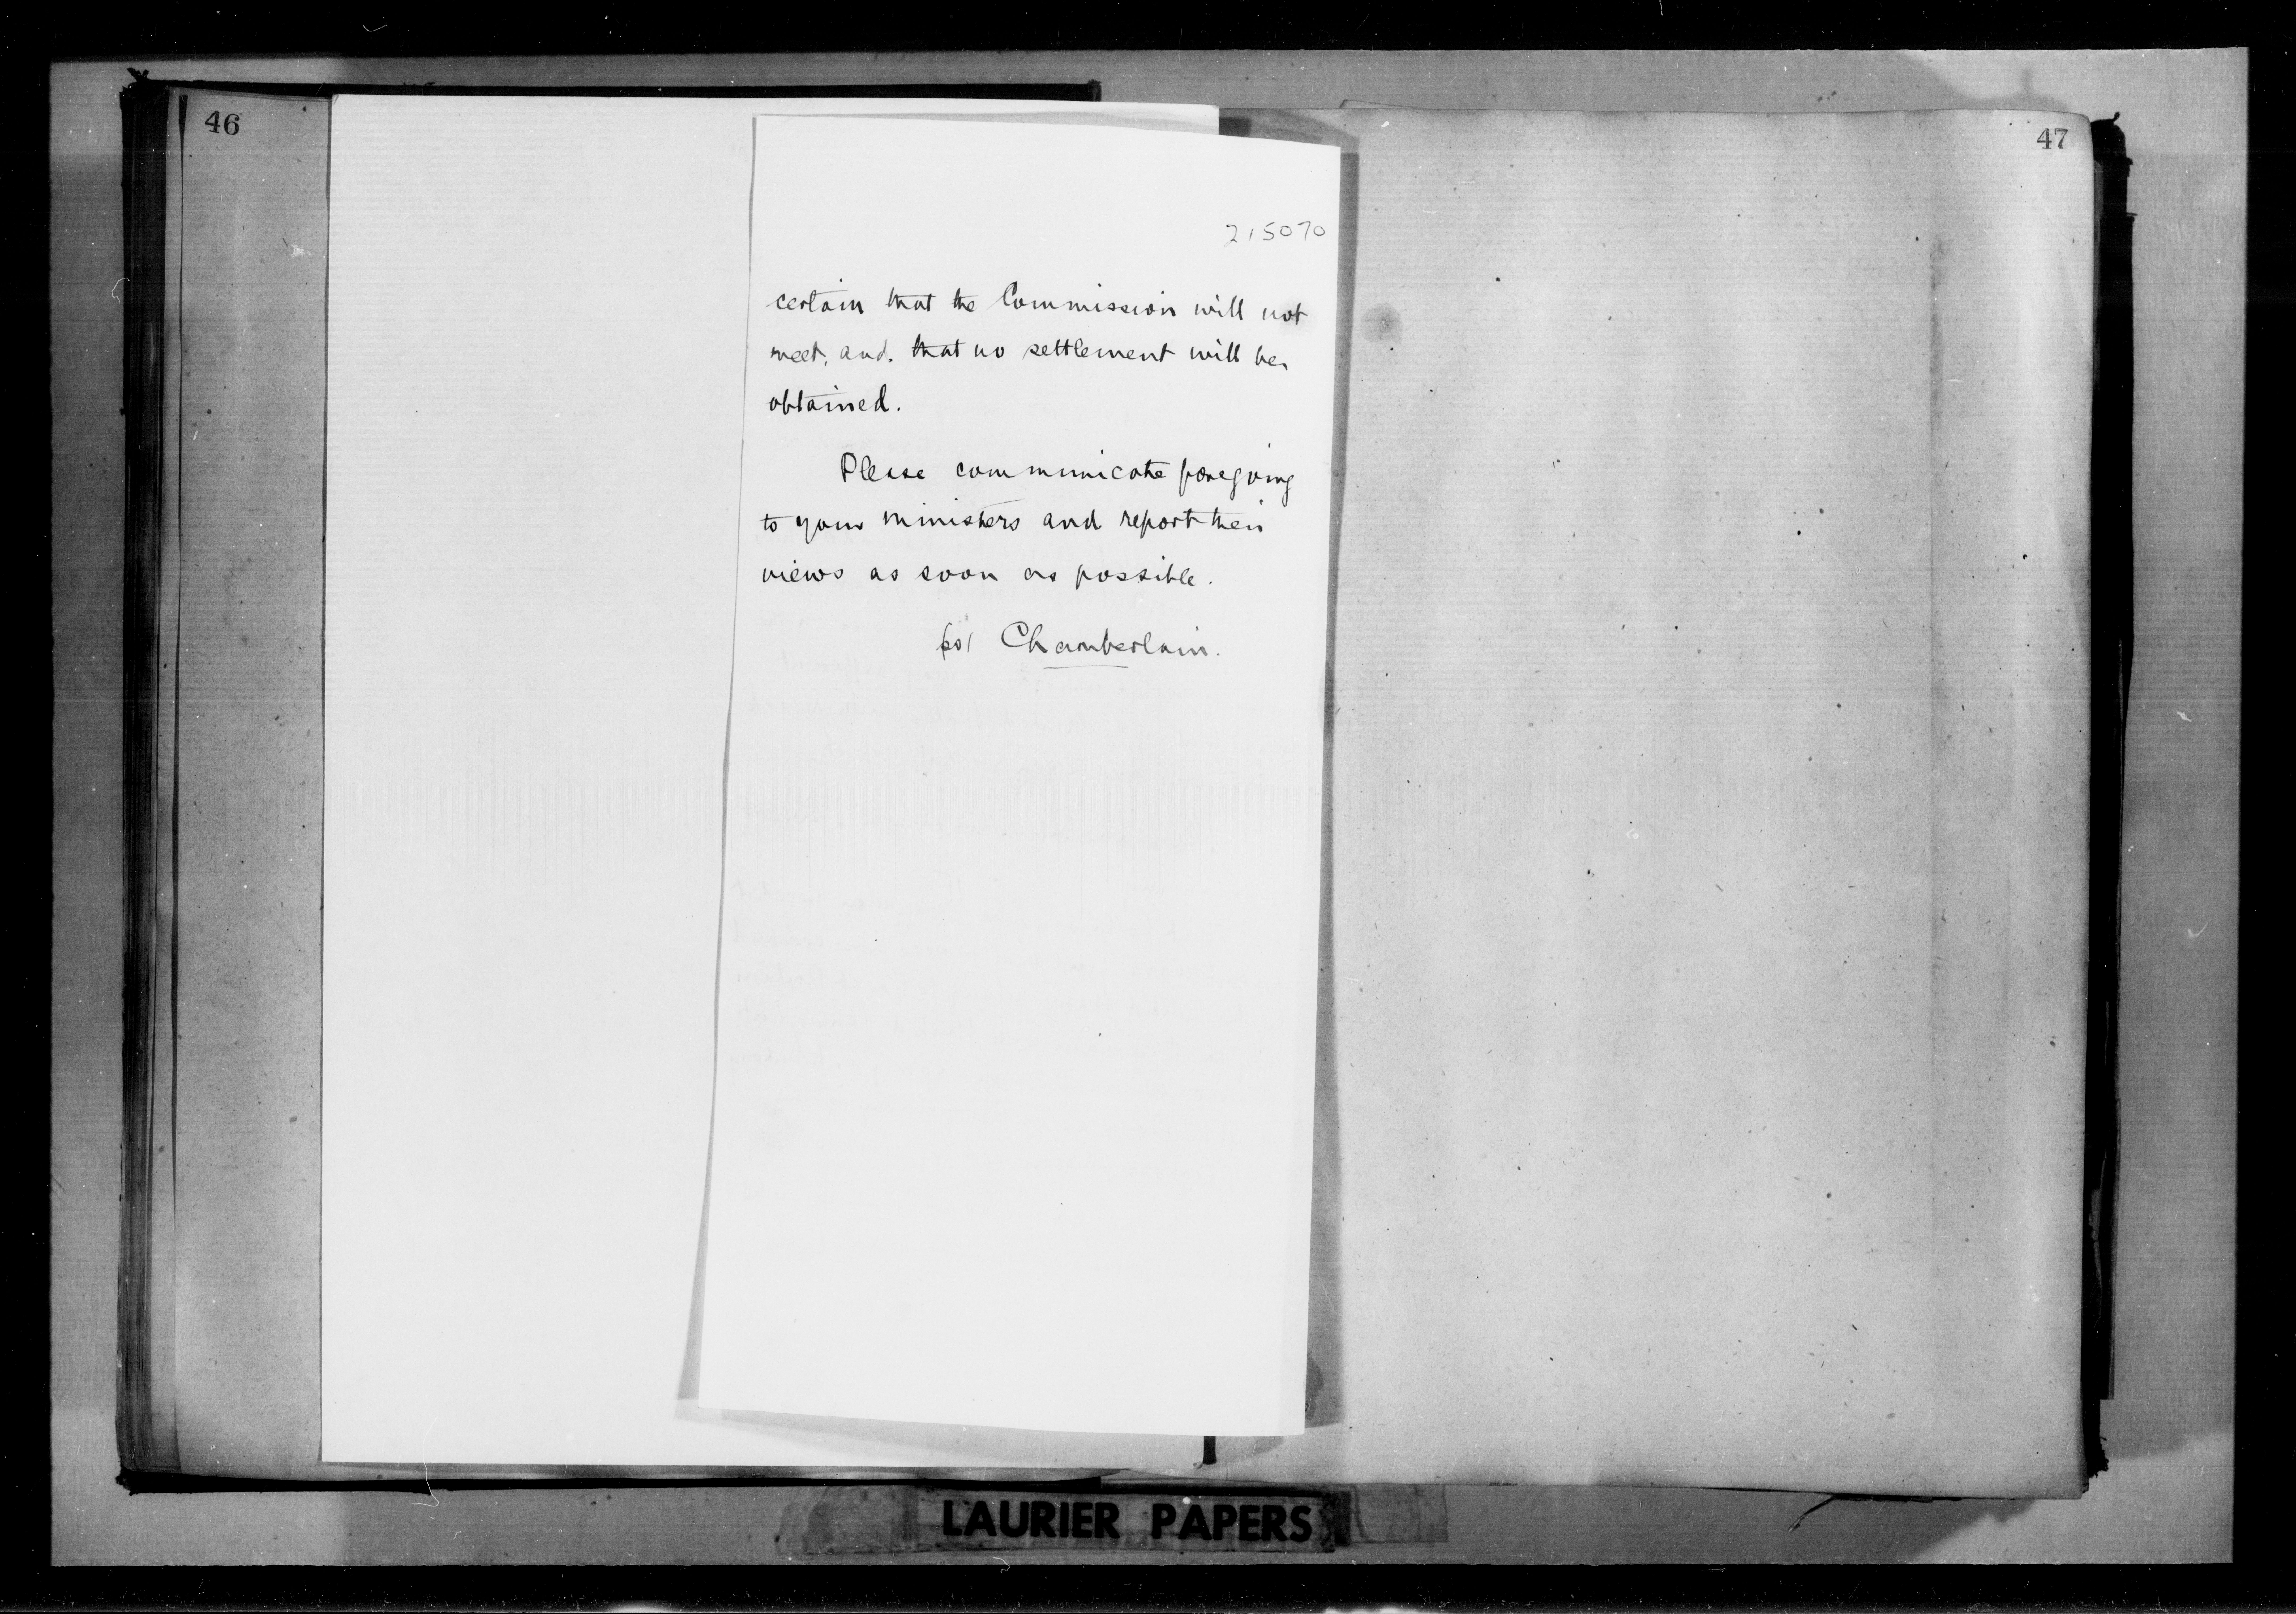 46
47
215070
certain that the Commission will not
meet, and that no settlement will be
obtained.
Please communicate foregoing
to your ministers and report their
views as soon as possible.
Chamberlain.
LAURIER PAPERS